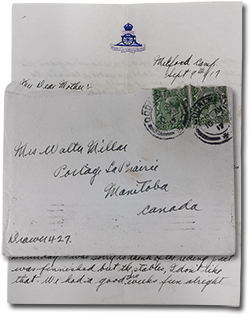 Milford Camp.
Sept 9th/17
My Dear Mother:-
Mrs Walter Millar
Portage La Prairie
Manitoba
Canada
Drawer 427.
was finnished but the stables, I don't like
that. We had a good weeks fun alright